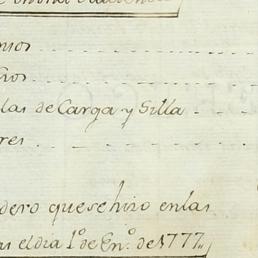 nios
ños
las de Carga y Silla
res
dero que se hizo en las
el dia 1º de Enº. de 1777,,